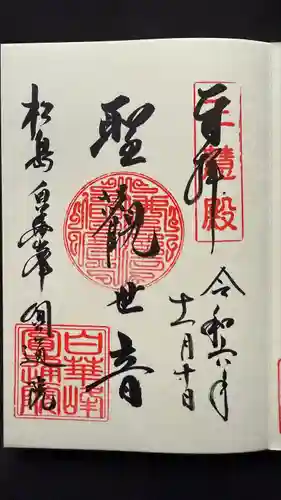 奉拝
三慧殿
令和六年
十一月十日
聖観世音
松島白華峰圓通院
白華峰
圓通院